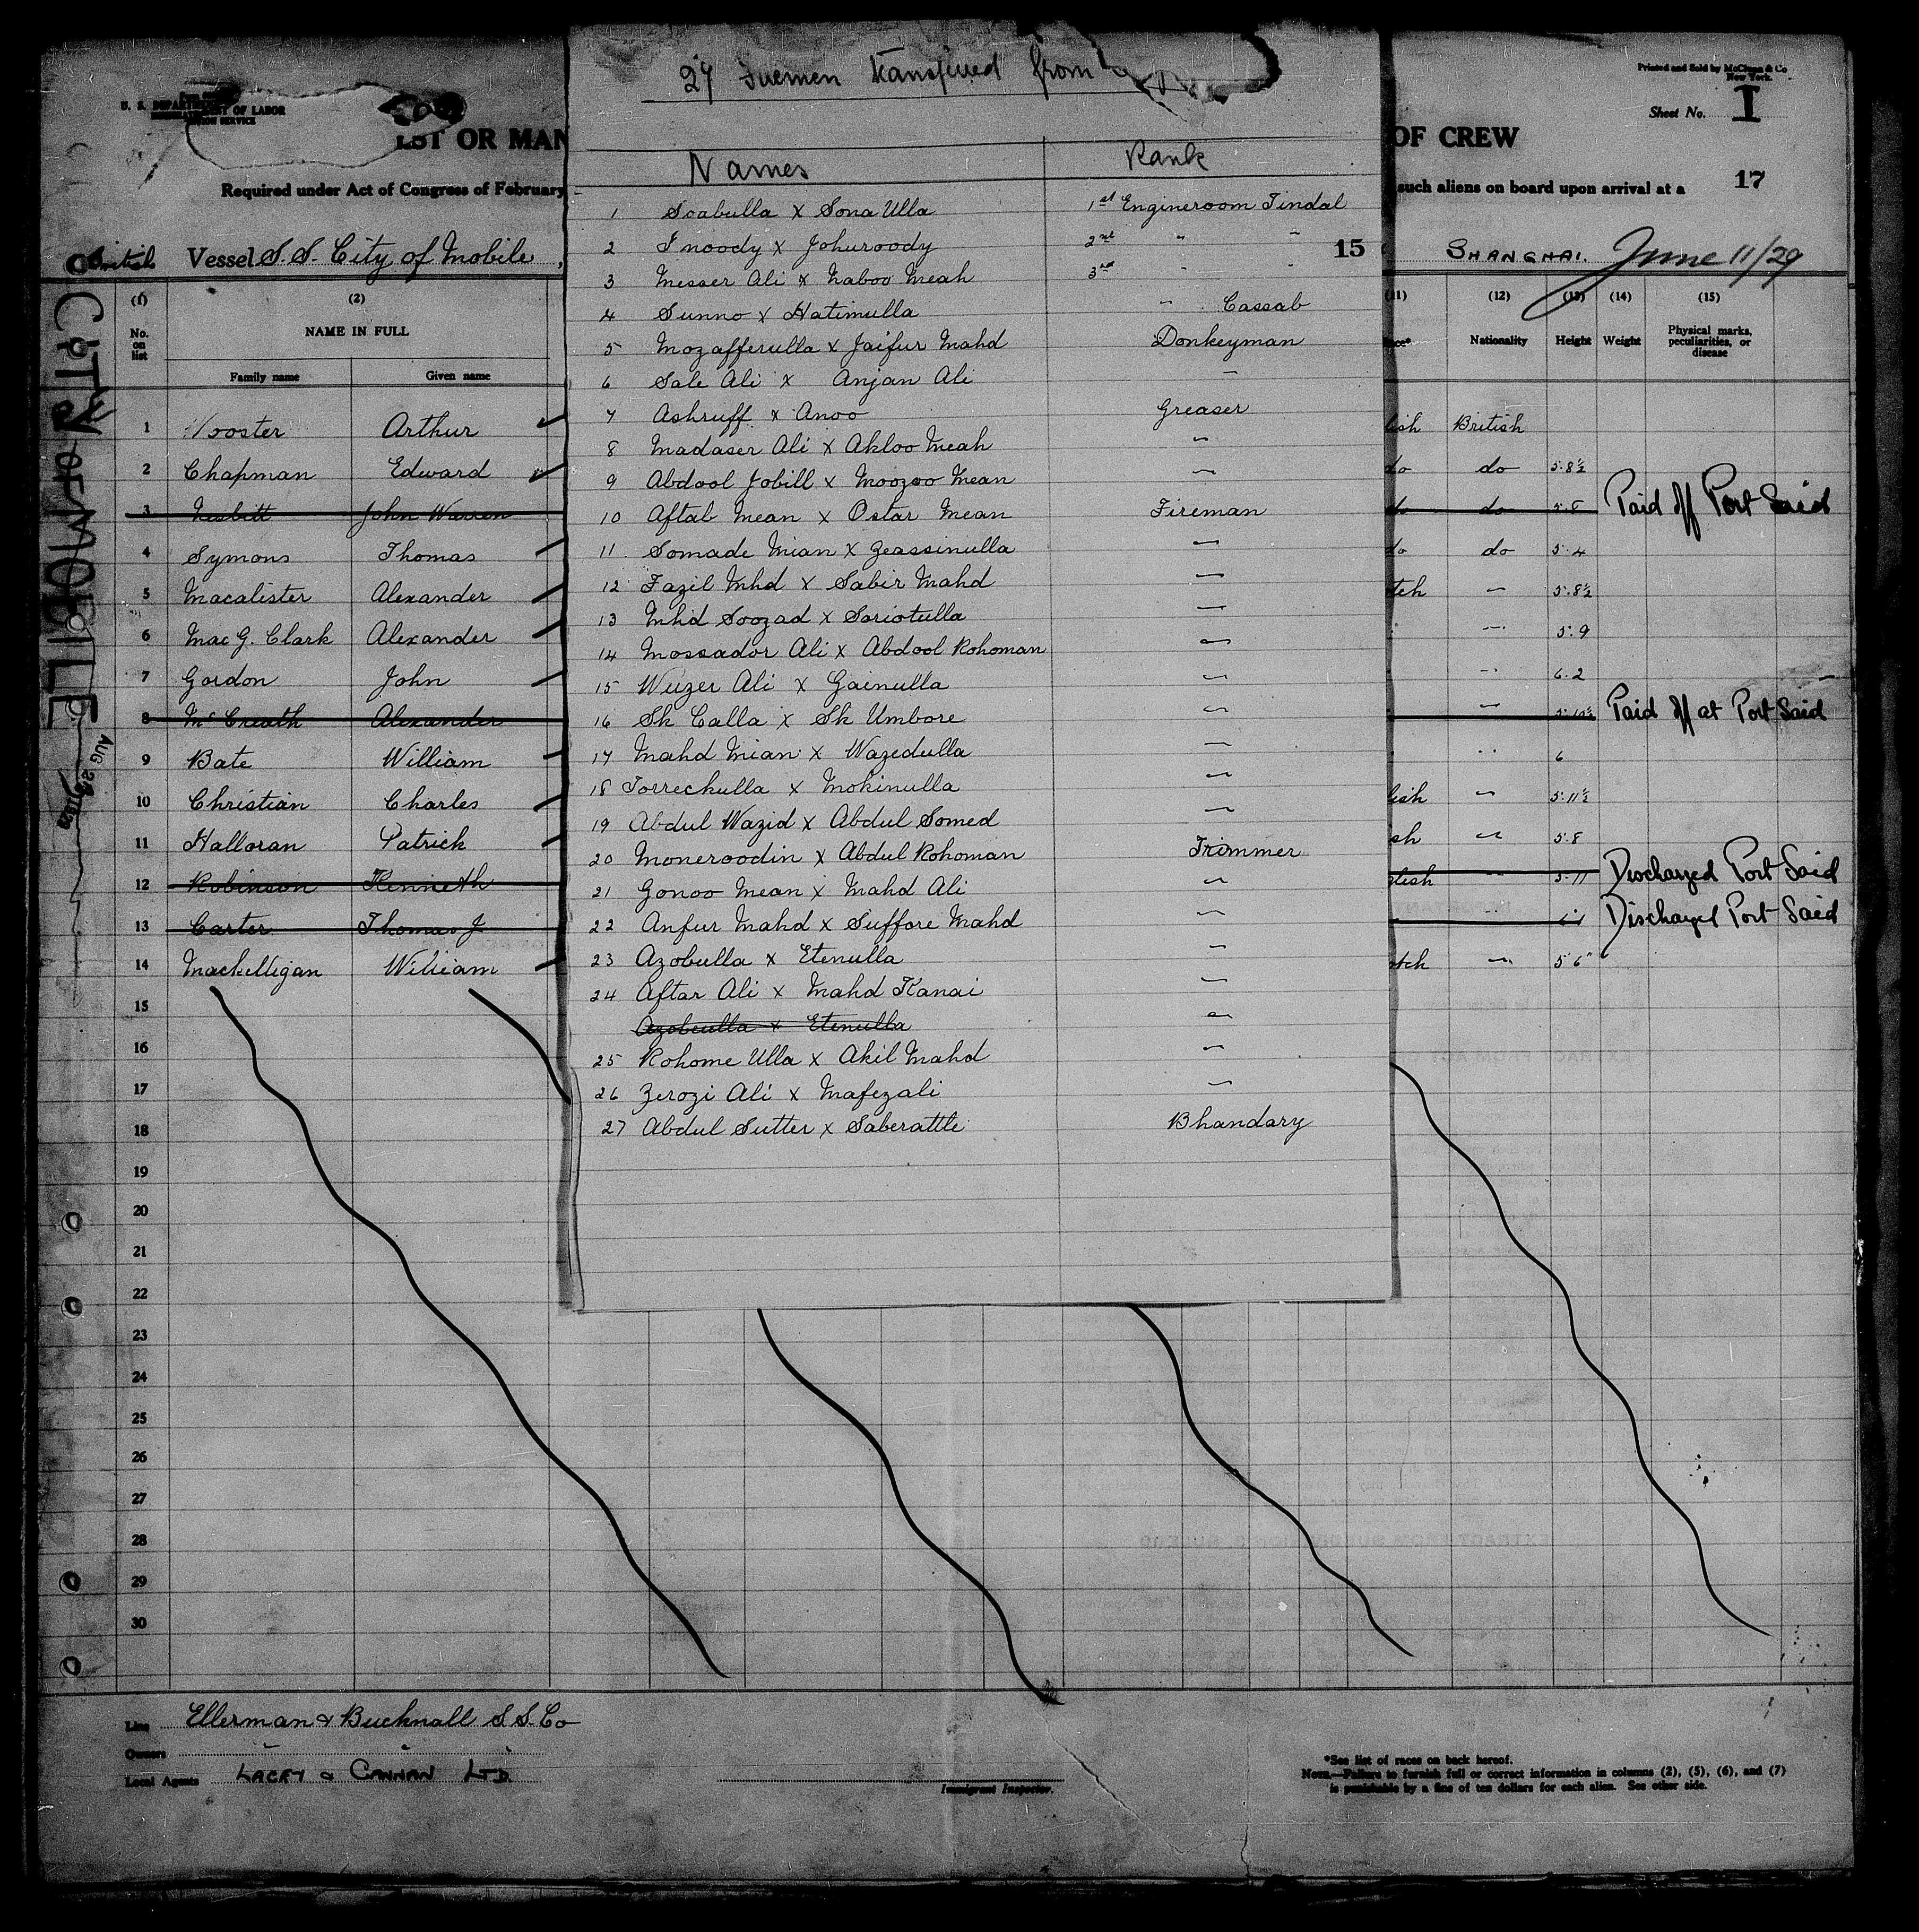 27 Firemen transferred from
Names Rank
1 Soabulla x Sona Ulla 1st Engineroom Tindal
2 Inoody x Johuroody 2nd " "
3 Messer Ali x Naboo Meah 3rd " "
4 Sunno x Hatimulla " Cassab
5 Mozafferulla x Jaifur Mahd Donkeyman
6 Sale Ali x Anjan Ali "
7 Ashruff x Anoo Greaser
8 Madaser Ali x Akloo Meah "
9 Abdool Jobill x Moozoo Mean "
10 Aftab Mean x Ostar Mean Fireman
11 Somade Mian x Zeassinulla "
12 Fazil Mhd x Sabir Mahd "
13 Mhd Soozad x Soriotulla "
14 Mossador Ali x Abdool Rohoman "
15 Wuzer Ali x Gainulla "
16 Sk Calla x Sk Umbore "
17 Mahd Mian x Wazedulla "
18 Torreckulla x Mokinulla "
19 Abdul Wazid x Abdul Somed "
20 Moneroodin x Abdul Rohoman Trimmer
21 Gonoo Mean x Mahd Ali "
22 Anfur Mahd x Suffore Mahd "
23 Azobulla x Etenulla "
24 Aftar Ali x Mahd Kanai "
Azobulla x Etenulla "
25 Rohome Ulla x Akil Mahd "
26 Zerozi Ali x Mafezali "
27 Abdul Sutter x Saberattle Bhandary
Printed and Sold by McClunn & Co
New York.
U. S. DEPARTMENT OF LABOR
Sheet No. I
LIST OR MAN OF CREW
Required under Act of Congress of February such aliens on board upon arrival at a 17
British Vessel S.S. City of Mobile, 15 SHANGHAI. June 11/29
CITY OF MOBILE
AUG 28 1929
(1) (2) (11) (12) (13) (14) (15)
No. on list NAME IN FULL Nationality Height Weight Physical marks, peculiarities, or disease
Family name Given name
1 Wooster Arthur lish British
2 Chapman Edward do do 5.8½
3 Nesbitt John Warren do do 5.8 Paid off Port Said
4 Symons Thomas do do 5.4
5 Macalister Alexander tch " 5.8½
6 Mac G. Clark Alexander " 5.9
7 Gordon John " 6.2
8 McCreath Alexander " 5.10½ Paid off at Port Said
9 Bate William " 6
10 Christian Charles lish " 5.11½
11 Halloran Patrick sh " 5.8
12 Robinson Kenneth glish " 5.11 Discharged Port Said
13 Carter Thomas J " 6.1 Discharged Port Said
14 Mackelligan William tch " 5.6"
15
16
17
18
19
20
21
22
23
24
25
26
27
28
29
30
Line Ellerman & Bucknall S.S. Co
Owners "
Local Agents LACEY & CANNAN LTD.
Immigrant Inspector.
*See list of races on back hereof.
NOTE.—Failure to furnish full or correct information in columns (2), (5), (6), and (7)
is punishable by a fine of ten dollars for each alien. See other side.